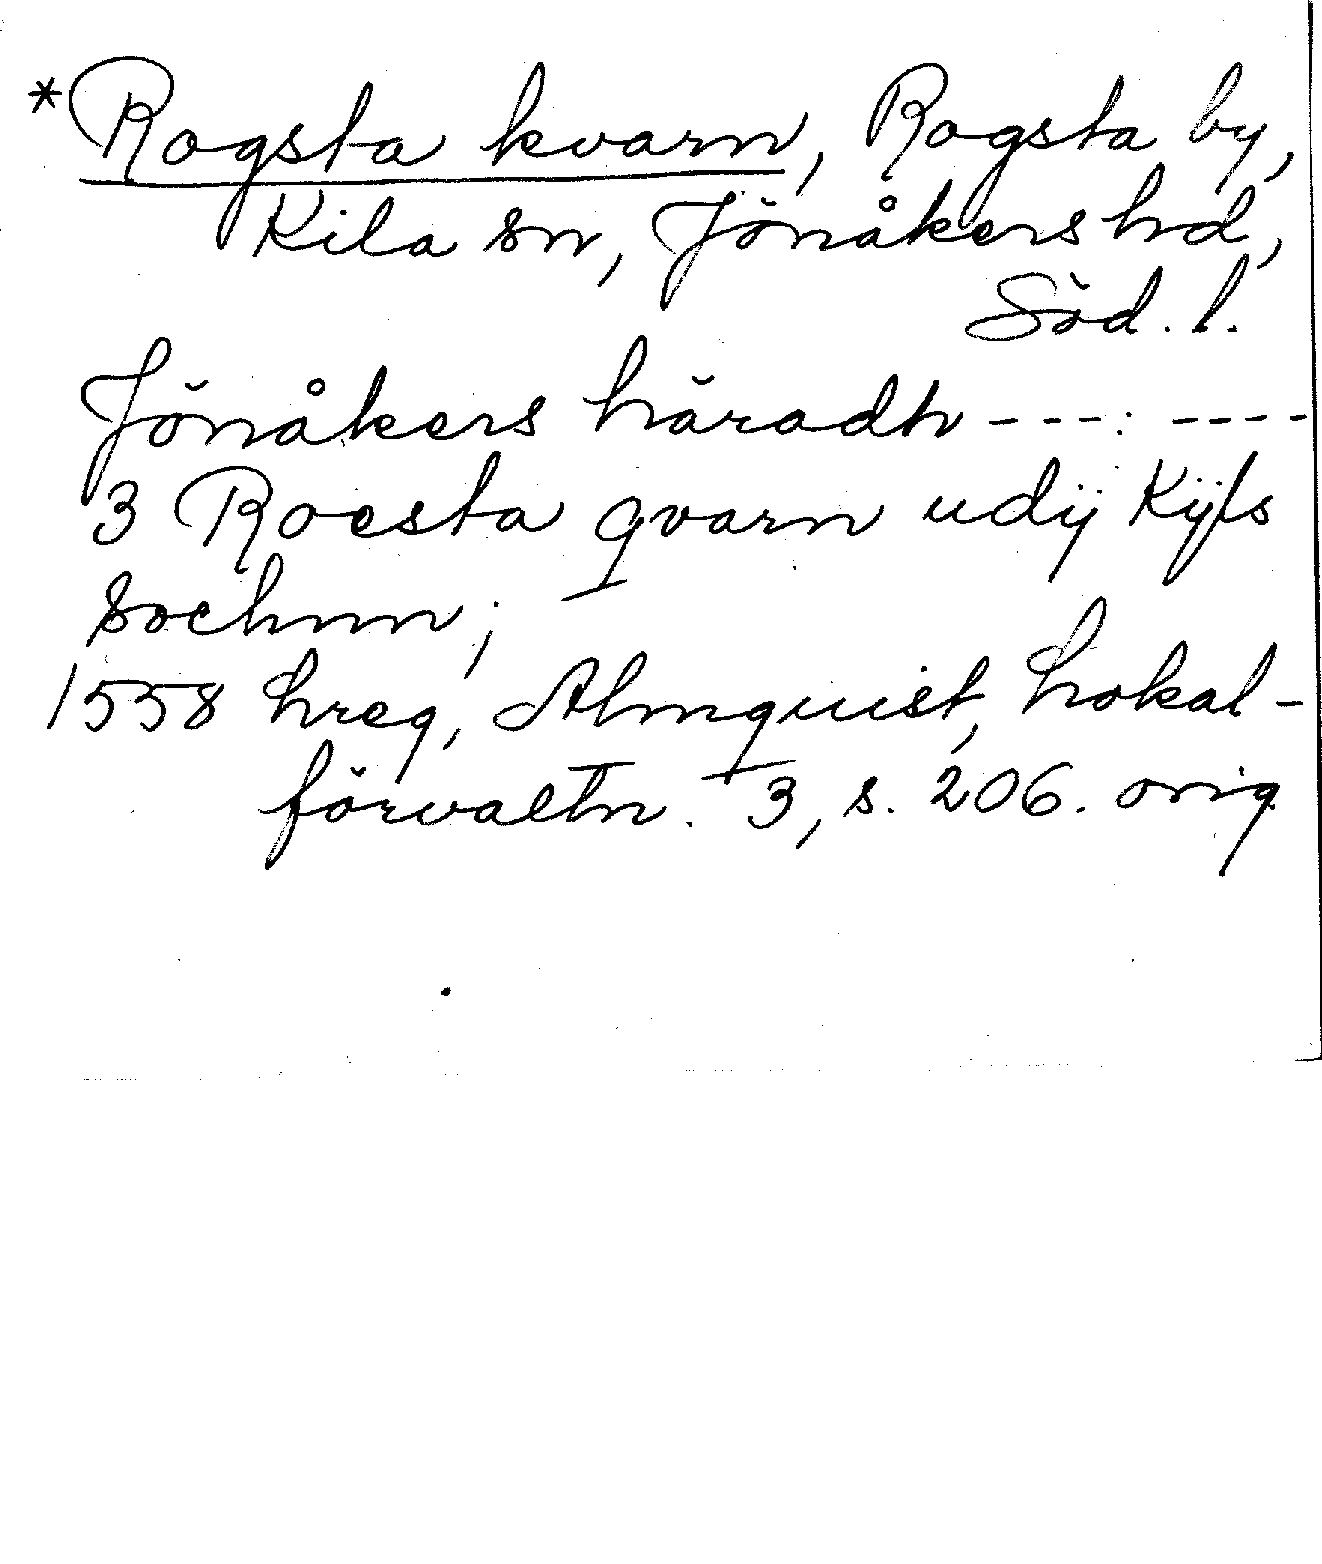 *Rogsta kvarn, Rogsta by,
Kila sn, Jönåkers hd,
Söd. l.
Jönåkers häradh ---: ----
3 Rocsta qvarn udij Kijls
sochnn;
1558 hreg, Almquist, Lokal-
förvaltn. 3, s. 206. orig